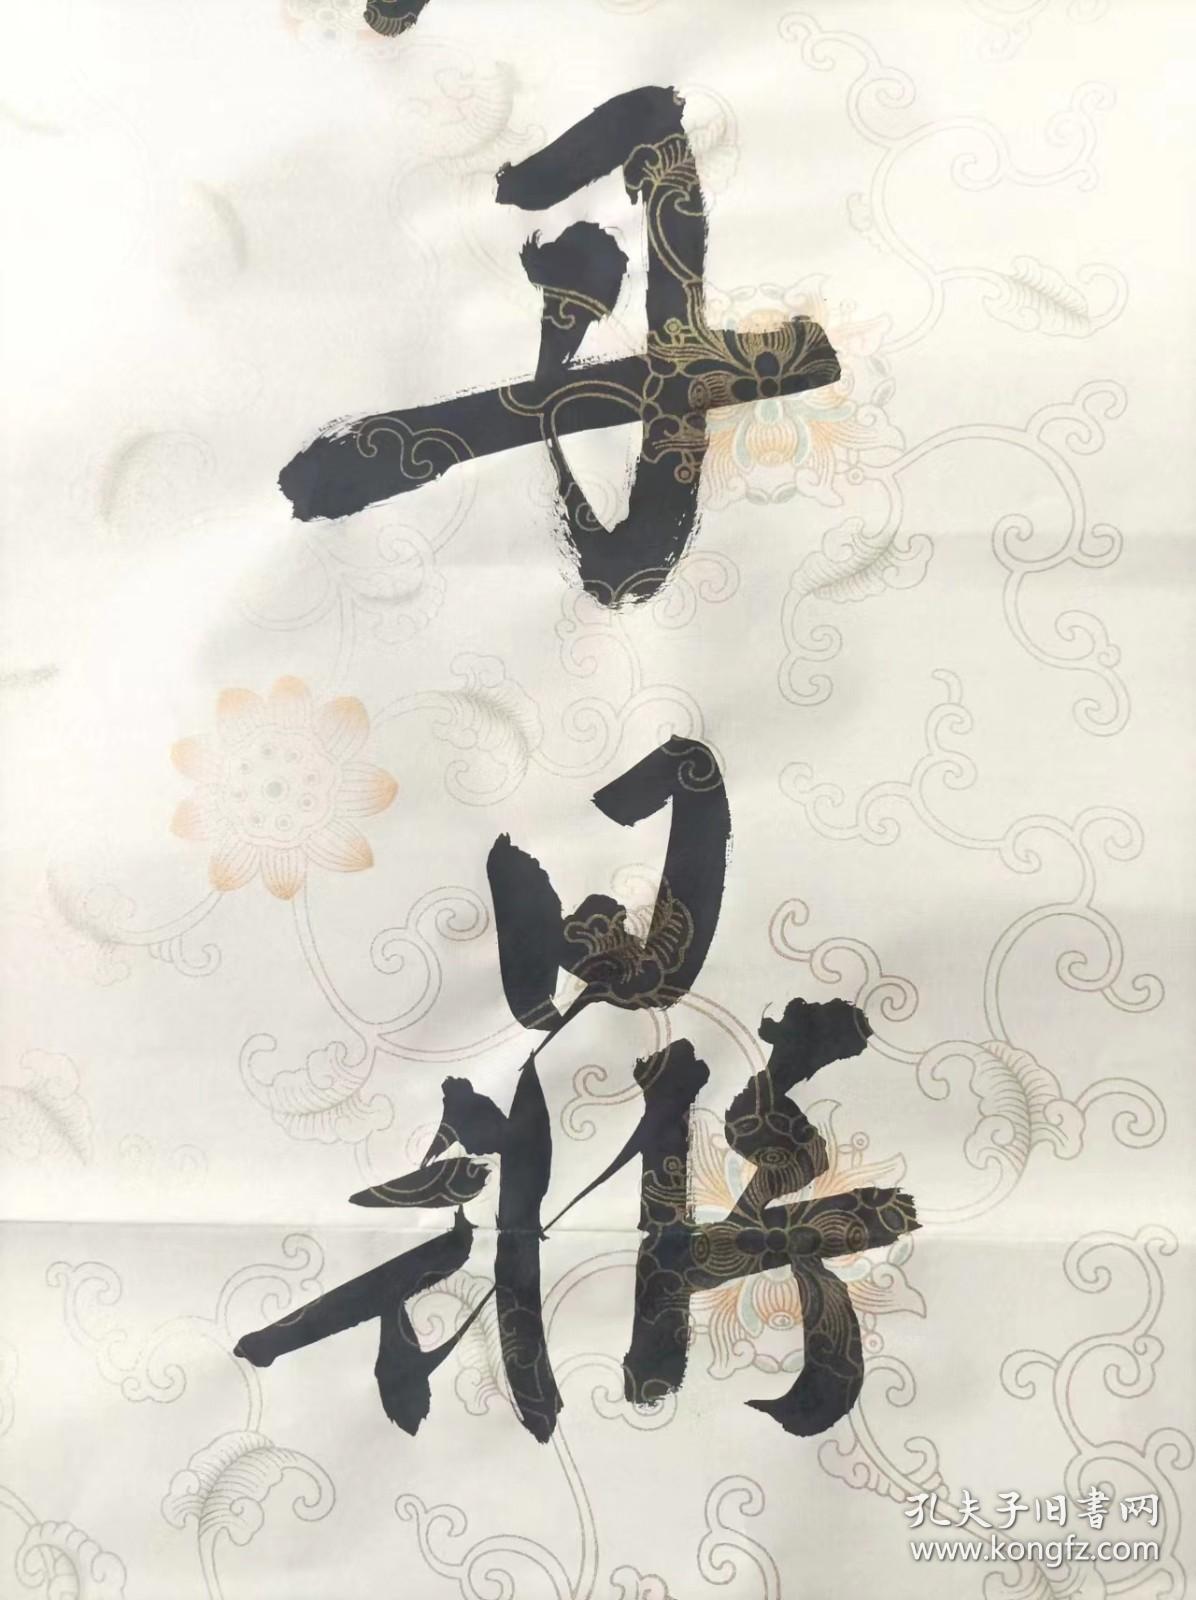 鼎
孔夫子旧書网
www.kongfz.com